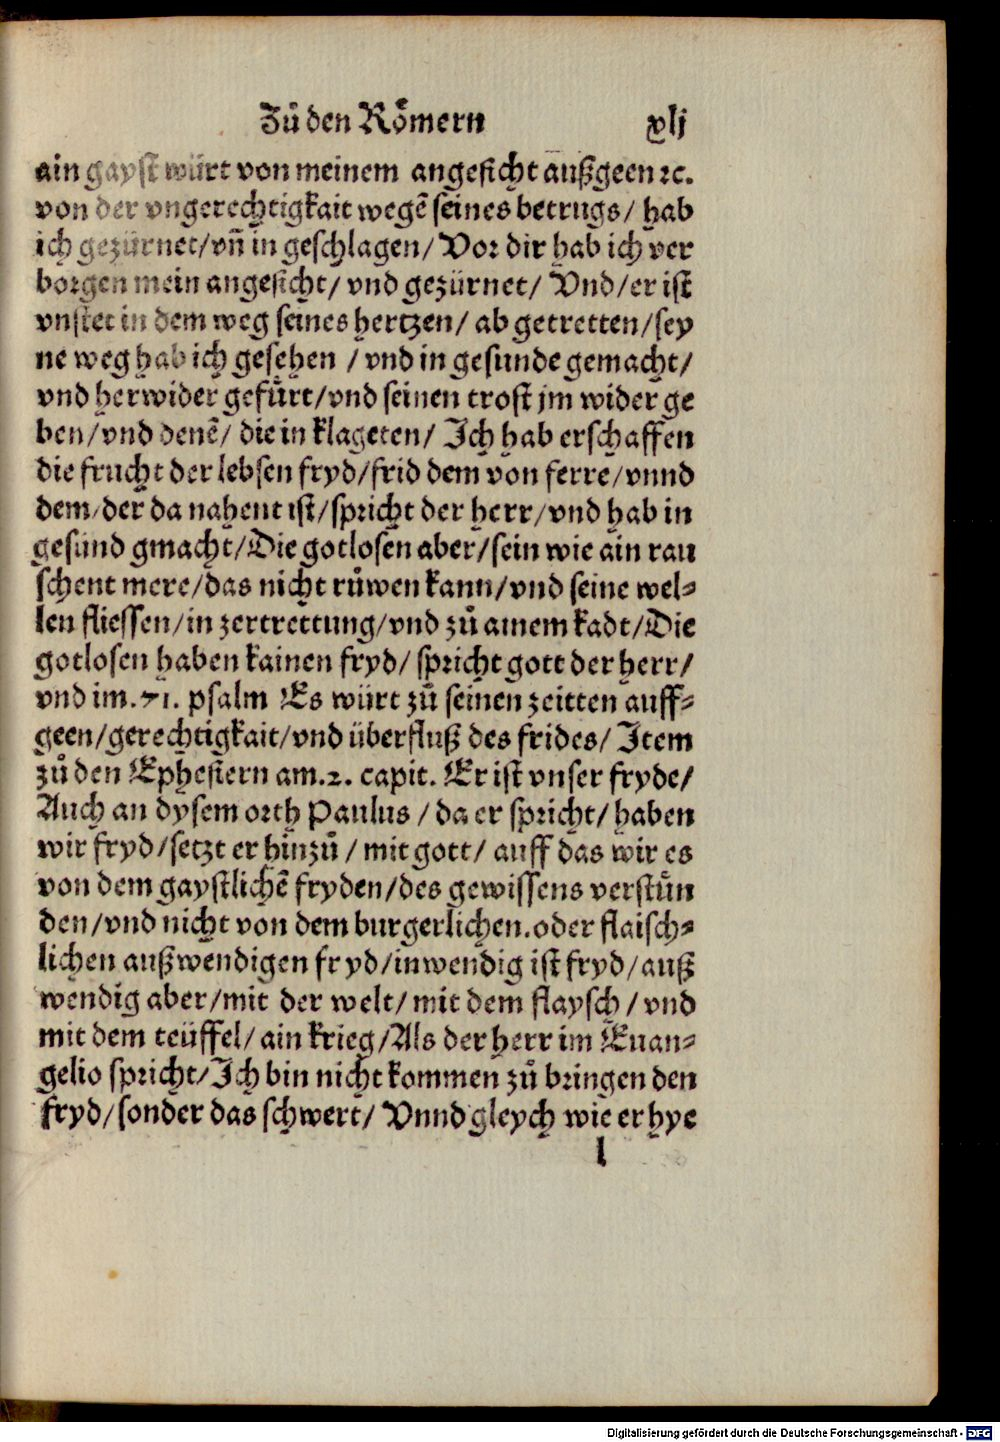 Zů den Roͤmern xlj
ain gayſt würt von meinem angeſicht außgeen ꝛc.
von der vngerechtigkait wegẽ ſeines betrugs/ hab
ich gezürnet/vñ in geſchlagen/ Vor dir hab ich ver
borgen mein angeſicht/ vnd gezürnet/ Vnd/er iſt
vnſtet in dem weg ſeines hertzen/ ab getretten/ſey
ne weg hab ich geſehen / vnd in geſunde gemacht/
vnd herwider gefůrt/vnd ſeinen troſt jm wider ge
ben/vnd denẽ/ die in klageten/ Ich hab erſchaffen
die frucht der lebſen fryd/frid dem von ferre/vnnd
dem/der da nahent iſt/ſpricht der herr/vnd hab in
geſund gmacht/Die gotloſen aber/ſein wie ain rau
ſchent mere/das nicht růwen kann/vnd ſeine wel⸗
len flieſſen/in zertrettung/vnd zů ainem kadt/Die
gotloſen haben kainen fryd/ ſpricht gott der herr/
vnd im.71. pſalm Es würt zů ſeinen zeitten auff⸗
geen/gerechtigkait/vnd überfluß des frides/ Item
zů den Epheſiern am.2. capit. Er iſt vnſer fryde/
Auch an dyſem orth Paulus / da er ſpricht/ haben
wir fryd/ſetzt er hinzů / mit gott/ auff das wir es
von dem gayſtlichẽ fryden/des gewiſſens verſtůn
den/vnd nicht von dem burgerlichen.oder flaiſch⸗
lichen außwendigen fryd/inwendig iſt fryd/auß
wendig aber/mit der welt/ mit dem flayſch / vnd
mit dem teüffel/ ain krieg/Als der herr im Euan⸗
gelio ſpricht/Ich bin nicht kommen zů bringen den
fryd/ſonder das ſchwert/ Vnnd gleych wie er hye
l
Digitalisierung gefördert durch die Deutsche Forschungsgemeinschaft - DFG